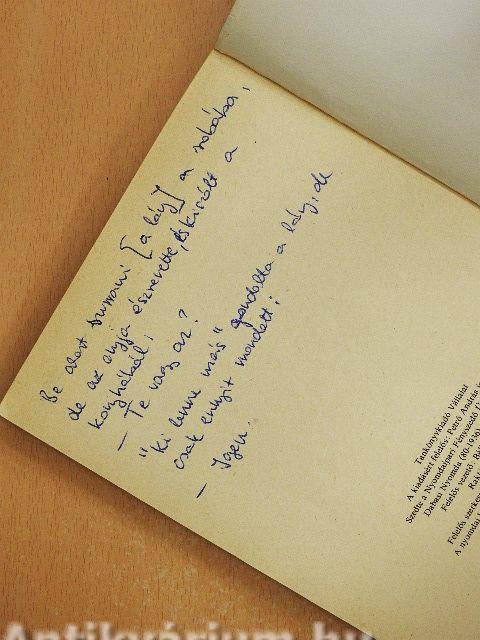 Be akart surranni [a lány] a szobába,
de az anyja észrevette, és kiszólt a
konyhából:
— Te vagy az?
"Ki lenne más" gondolta a lány, de
csak ennyit mondott:
— Igen.
Tankönyvkiadó Vállalat
A kiadásért felelős: Petró András
Szedte a Nyomdaipari Fényszedő
Dabasi Nyomda (80-1936)
Felelős vezető:
Felelős
A nyomdai
Antikvárium.hu